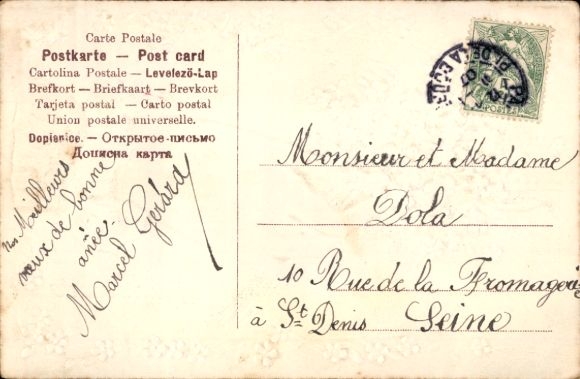 Carte Postale
Postkarte — Post card
Cartolina Postale – Levelező-Lap
Brefkort – Briefkaart – Brevkort
Tarjeta postal – Carto postal
Union postale universelle.
Dopisnice. – Открытое письмо
Дописна карта
Nos Meilleurs
vœux de bonne
anée
Marcel Gerard
Monsieur et Madame
Dola
10 Rue de la Fromagerie
à St Denis Seine